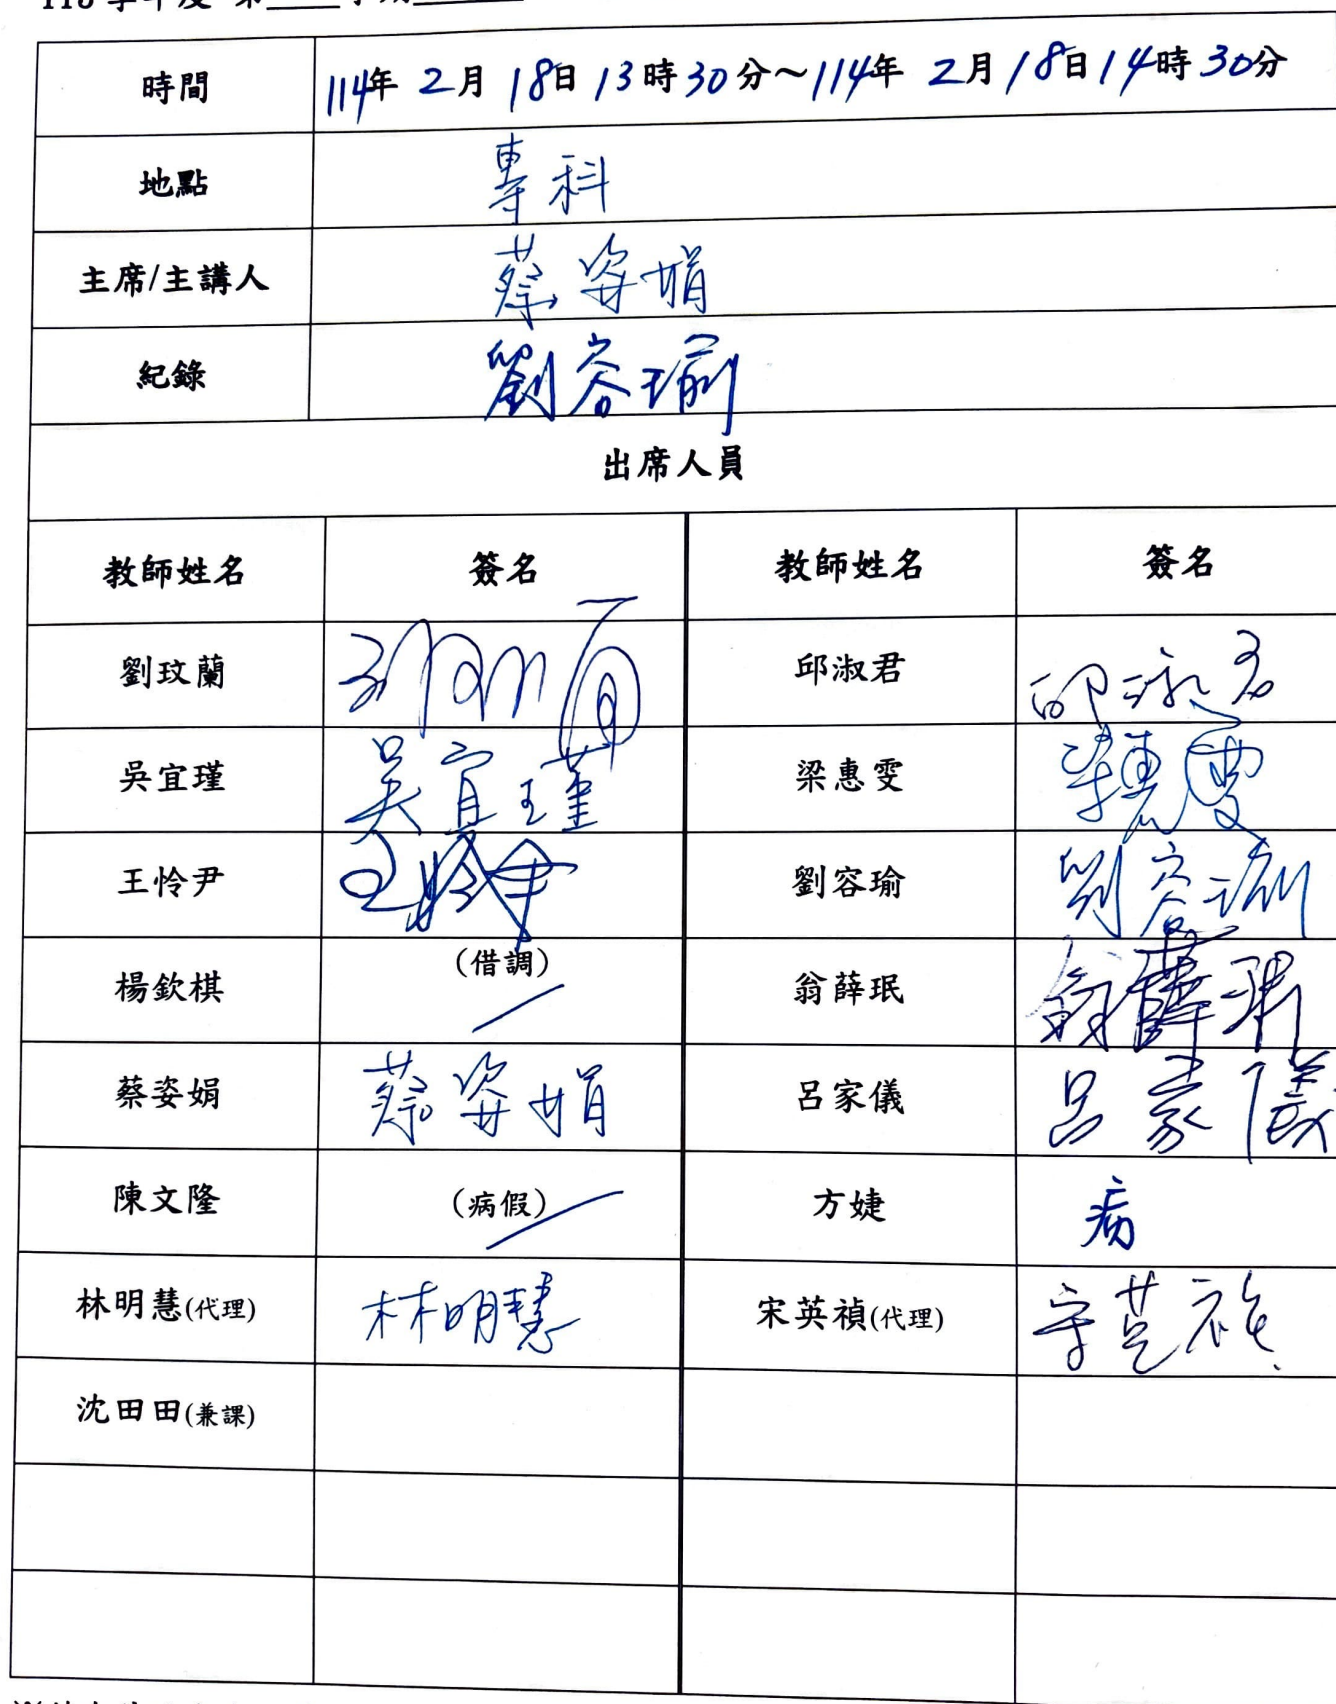 113 學年度 第____學期
時間 114年 2月 18日 13時30分～114年 2月 18日14時30分
地點 專科
主席/主講人 蔡姿娟
紀錄 劉容瑜
出席人員
教師姓名 簽名 教師姓名 簽名
劉玟蘭 邱淑君 邱淑君
吳宜瑾 吳宜瑾 梁惠雯 梁惠雯
王怜尹 王怜尹 劉容瑜 劉容瑜
楊欽棋 (借調) 翁薛珉 翁薛珉
蔡姿娟 蔡姿娟 呂家儀 呂家儀
陳文隆 (病假) 方婕 病
林明慧(代理) 林明慧 宋英禎(代理) 宋英禎
沈田田(兼課)